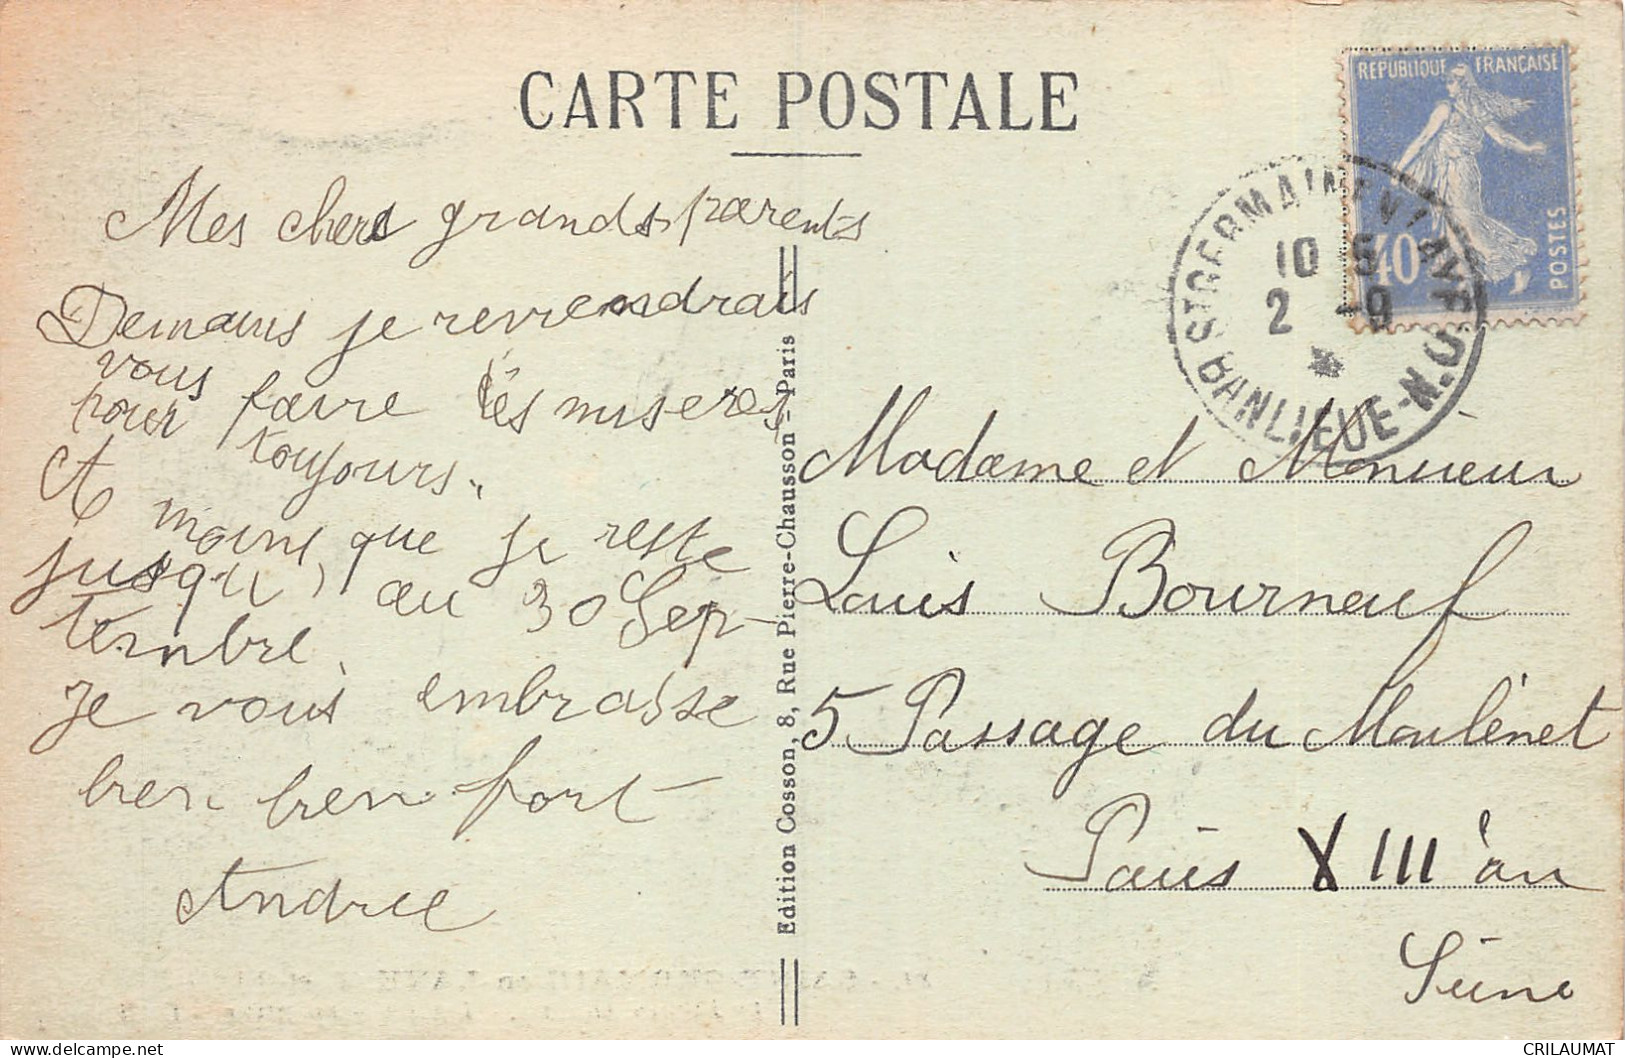 CARTE POSTALE
REPUBLIQUE FRANÇAISE
40
POSTES
ST GERMAIN EN LAYE
10 5
2 -9
BANLIEUE-N.O
Mes chers grands parents
Demains je revrendrais
vous
pour faire tés miseres
toujours.
A moins que je reste
jusqu' au 30 Sep-
tembre.
Je vous embrasse
bien bien fort
Andrée
Edition Cosson, 8, Rue Pierre-Chausson - Paris
Madame et Monsieur
Louis Bourneuf
5 Passage du Moulènet
Paris XIII
Seine
CRILAUMAT